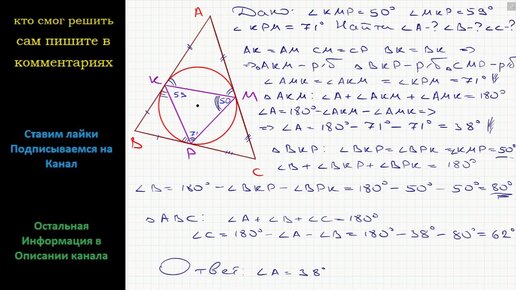 кто смог решить
сам пишите в
комментариях
Ставим лайки
Подписываемся на
Канал
Остальная
Информация в
Описании канала
A
K
53
50
M
B
71
P
C
Дано: ∠KMP=50° ∠MKP=59°
∠KPM=71° Найти ∠A-? ∠B-? ∠C-?
AK=AM CM=CP BK=BK ⇒
⇒ △AKM-р/б △BKP-р/б △CMP-р/б
∠AMK=∠AKM=∠KPM=71°
△AKM: ∠A+∠AKM+∠AMK=180°
∠A=180°-∠AKM-∠AMK=>
⇒ ∠A=180°-71°-71°=38°
△BKP: ∠BKP=∠BPK=∠KMP=50°
∠B+∠BKP+∠BPK=180°
∠B=180°-∠BKP-∠BPK=180°-50°-50°=80°
△ABC: ∠A+∠B+∠C=180°
∠C=180°-∠A-∠B=180°-38°-80°=62°
Ответ: ∠A=38°